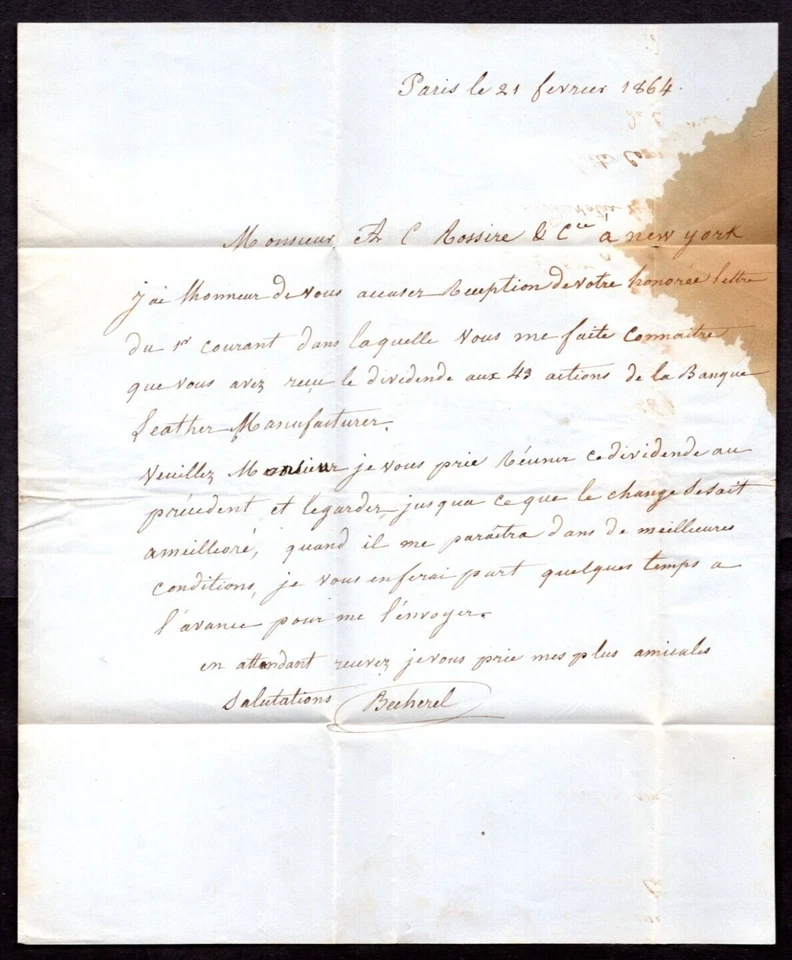 Paris le 21 fevrier 1864.
Monsieur A C Rossire & Cie a new york
j'ai lhonneur de vous accuser Reception de votre honorée lettre
du 1er courant dans laquelle vous me faite connaitre
que vous avez reçu le dividende aux 43 actions de la Banque
Leather Manufacturer.
Veuillez Monsieur je vous prie Réunir ce dividende au
précédent et legarder jusqua ce que le change se soit
amellioré, quand il me paraîtra dans de meilleures
conditions, je vous enferai part quelques temps a
l'avance pour me l'envoyer.
en attendant recevez je vous prie mes plus amicales
Salutations Becherel